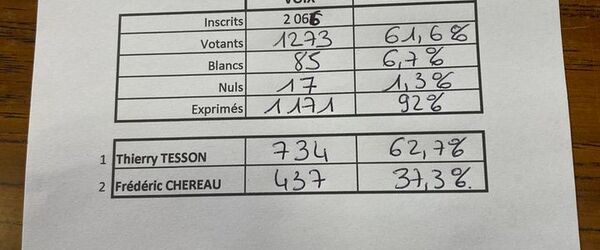 VOIX
Inscrits 2 066
Votants 1273 61,6%
Blancs 85 6,7%
Nuls 17 1,3%
Exprimés 1171 92%
1 Thierry TESSON 734 62,7%
2 Frédéric CHEREAU 437 37,3%.